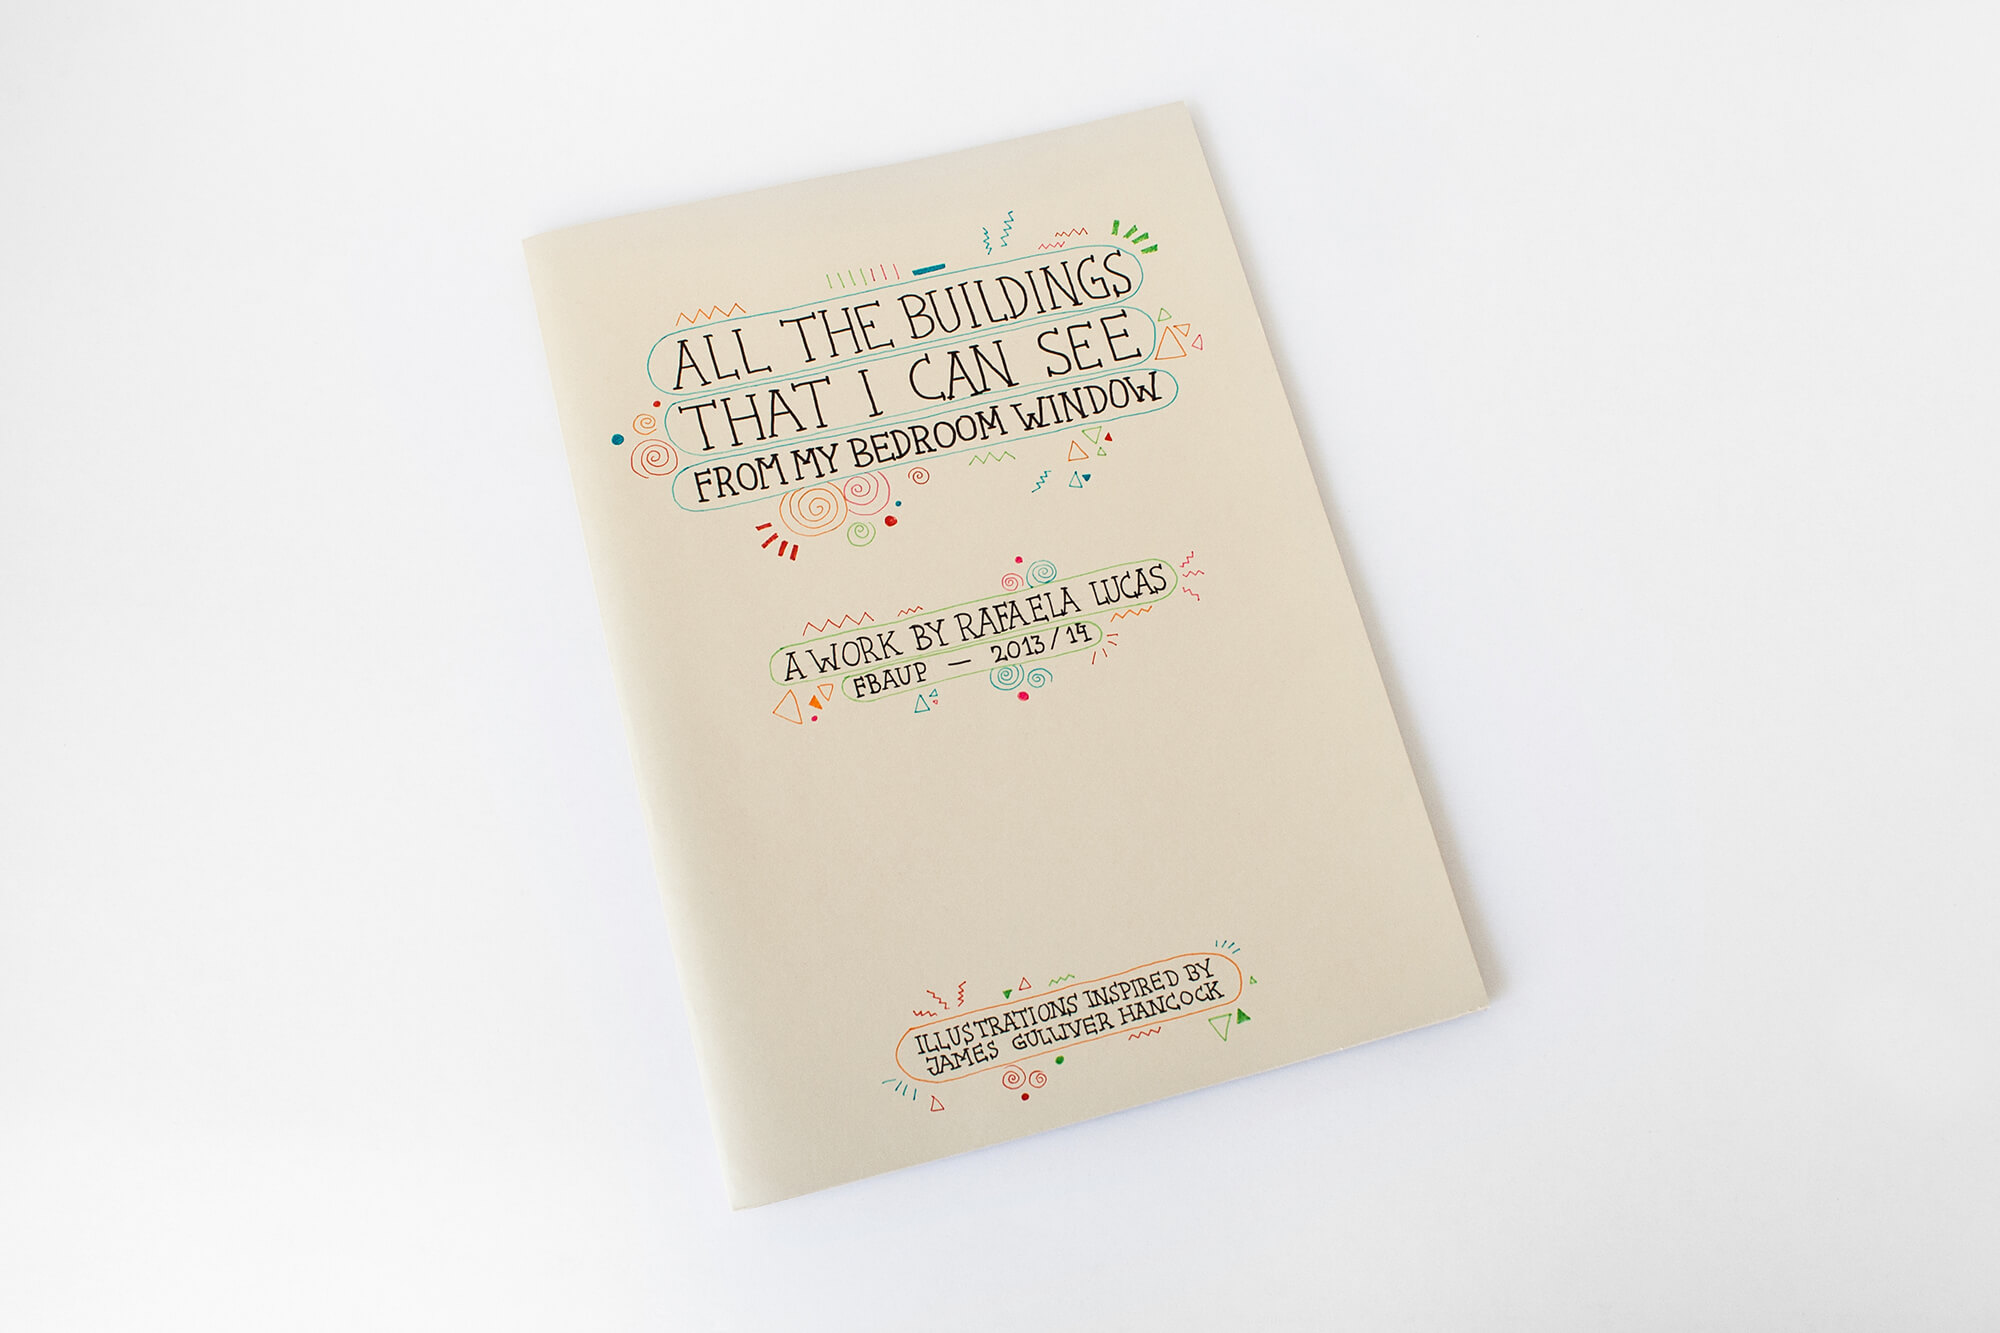 ALL THE BUILDINGS
THAT I CAN SEE
FROM MY BEDROOM WINDOW
A WORK BY RAFAELA LUCAS
FBAUP — 2013/14
ILLUSTRATIONS INSPIRED BY
JAMES GULLIVER HANCOCK